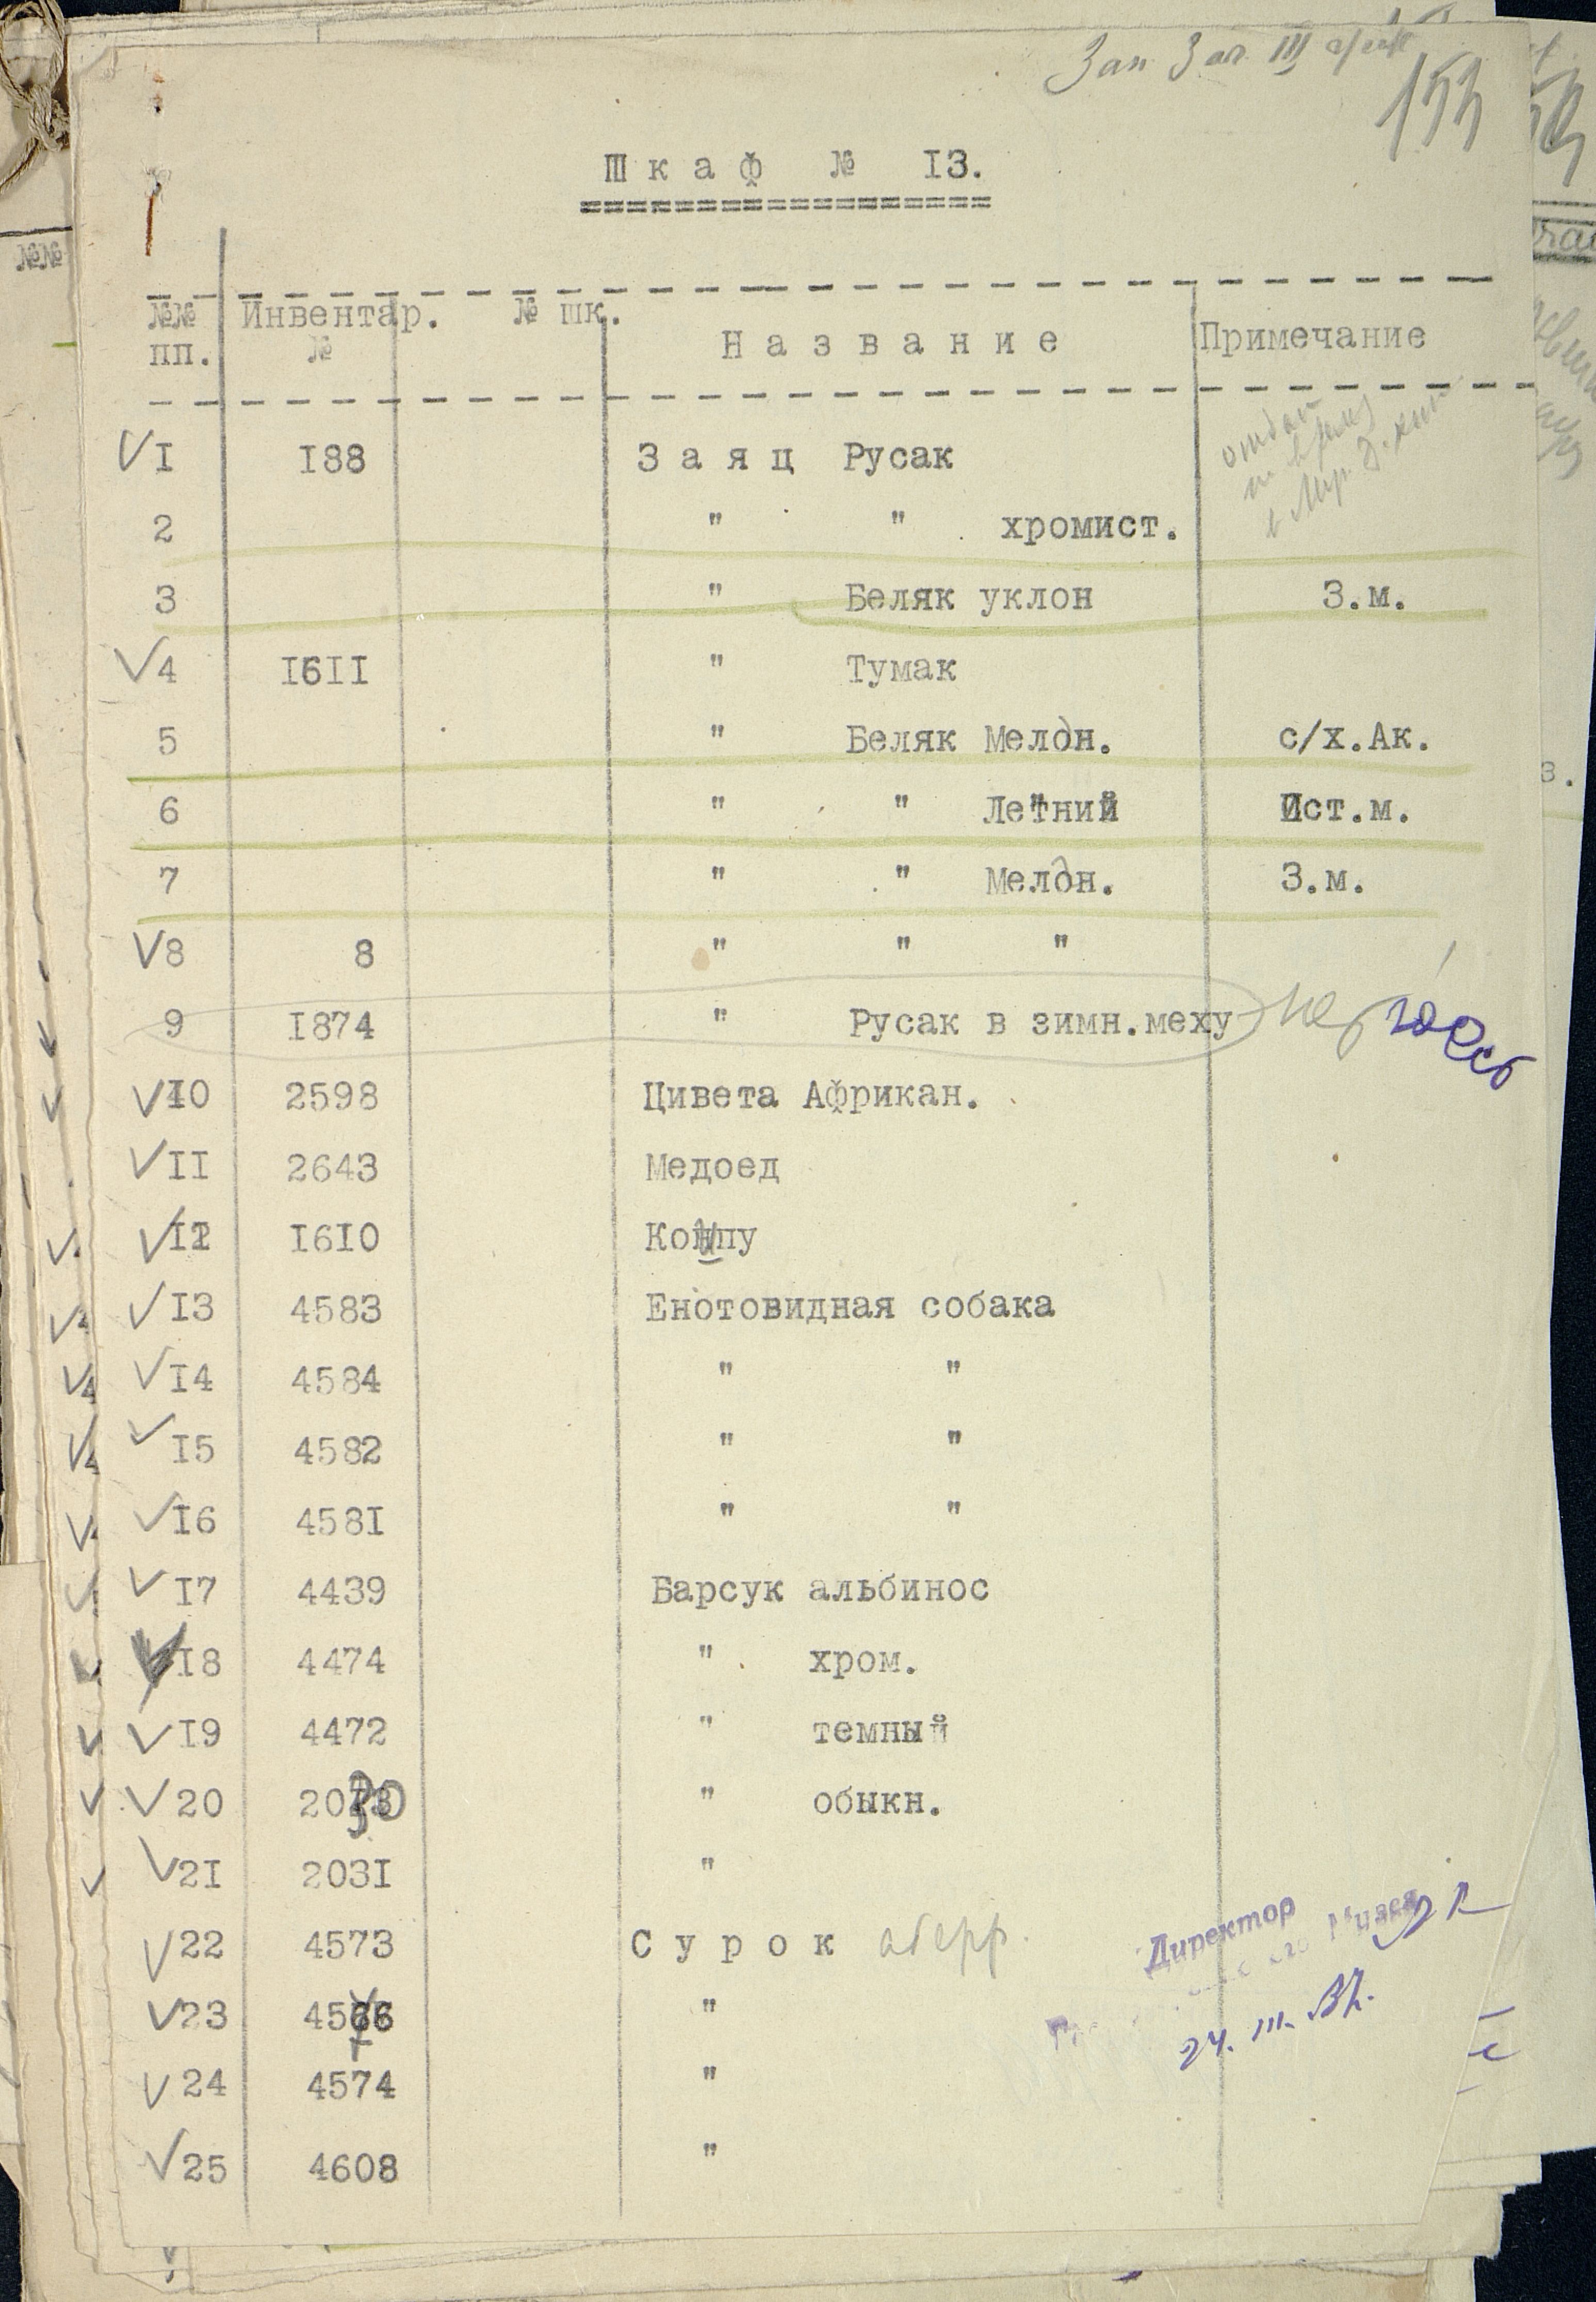 Зал 3 эт. III
153
Шкаф № I3.
№№ Инвентар. № шк.
пп. № Название Примечание
√ I I88 Заяц Русак
2 " " хромист.
3 " Беляк уклон З.м.
√ 4 I6II " Тумак
5 " Беляк Мелан. с/х.Ак.
6 " " Летний Ист.м.
7 " " Мелан. З.м.
√ 8 8 " " "
9 I874 " Русак в зимн.меху нет здесь
√ I0 2598 Цивета Африкан.
√ II 2643 Медоед
√ I2 I6I0 Койпу
√ I3 4583 Енотовидная собака
√ I4 4584 " "
√ I5 4582 " "
√ I6 458I " "
√ I7 4439 Барсук альбинос
√ I8 4474 " хром.
√ I9 4472 " темный
√ 20 2030 " обыкн.
√ 2I 203I "
√ 22 4573 Сурок аберр.
√ 23 "
√ 24 4574 "
√ 25 4608 "
Директор
Музея
24. III.
№№
з.